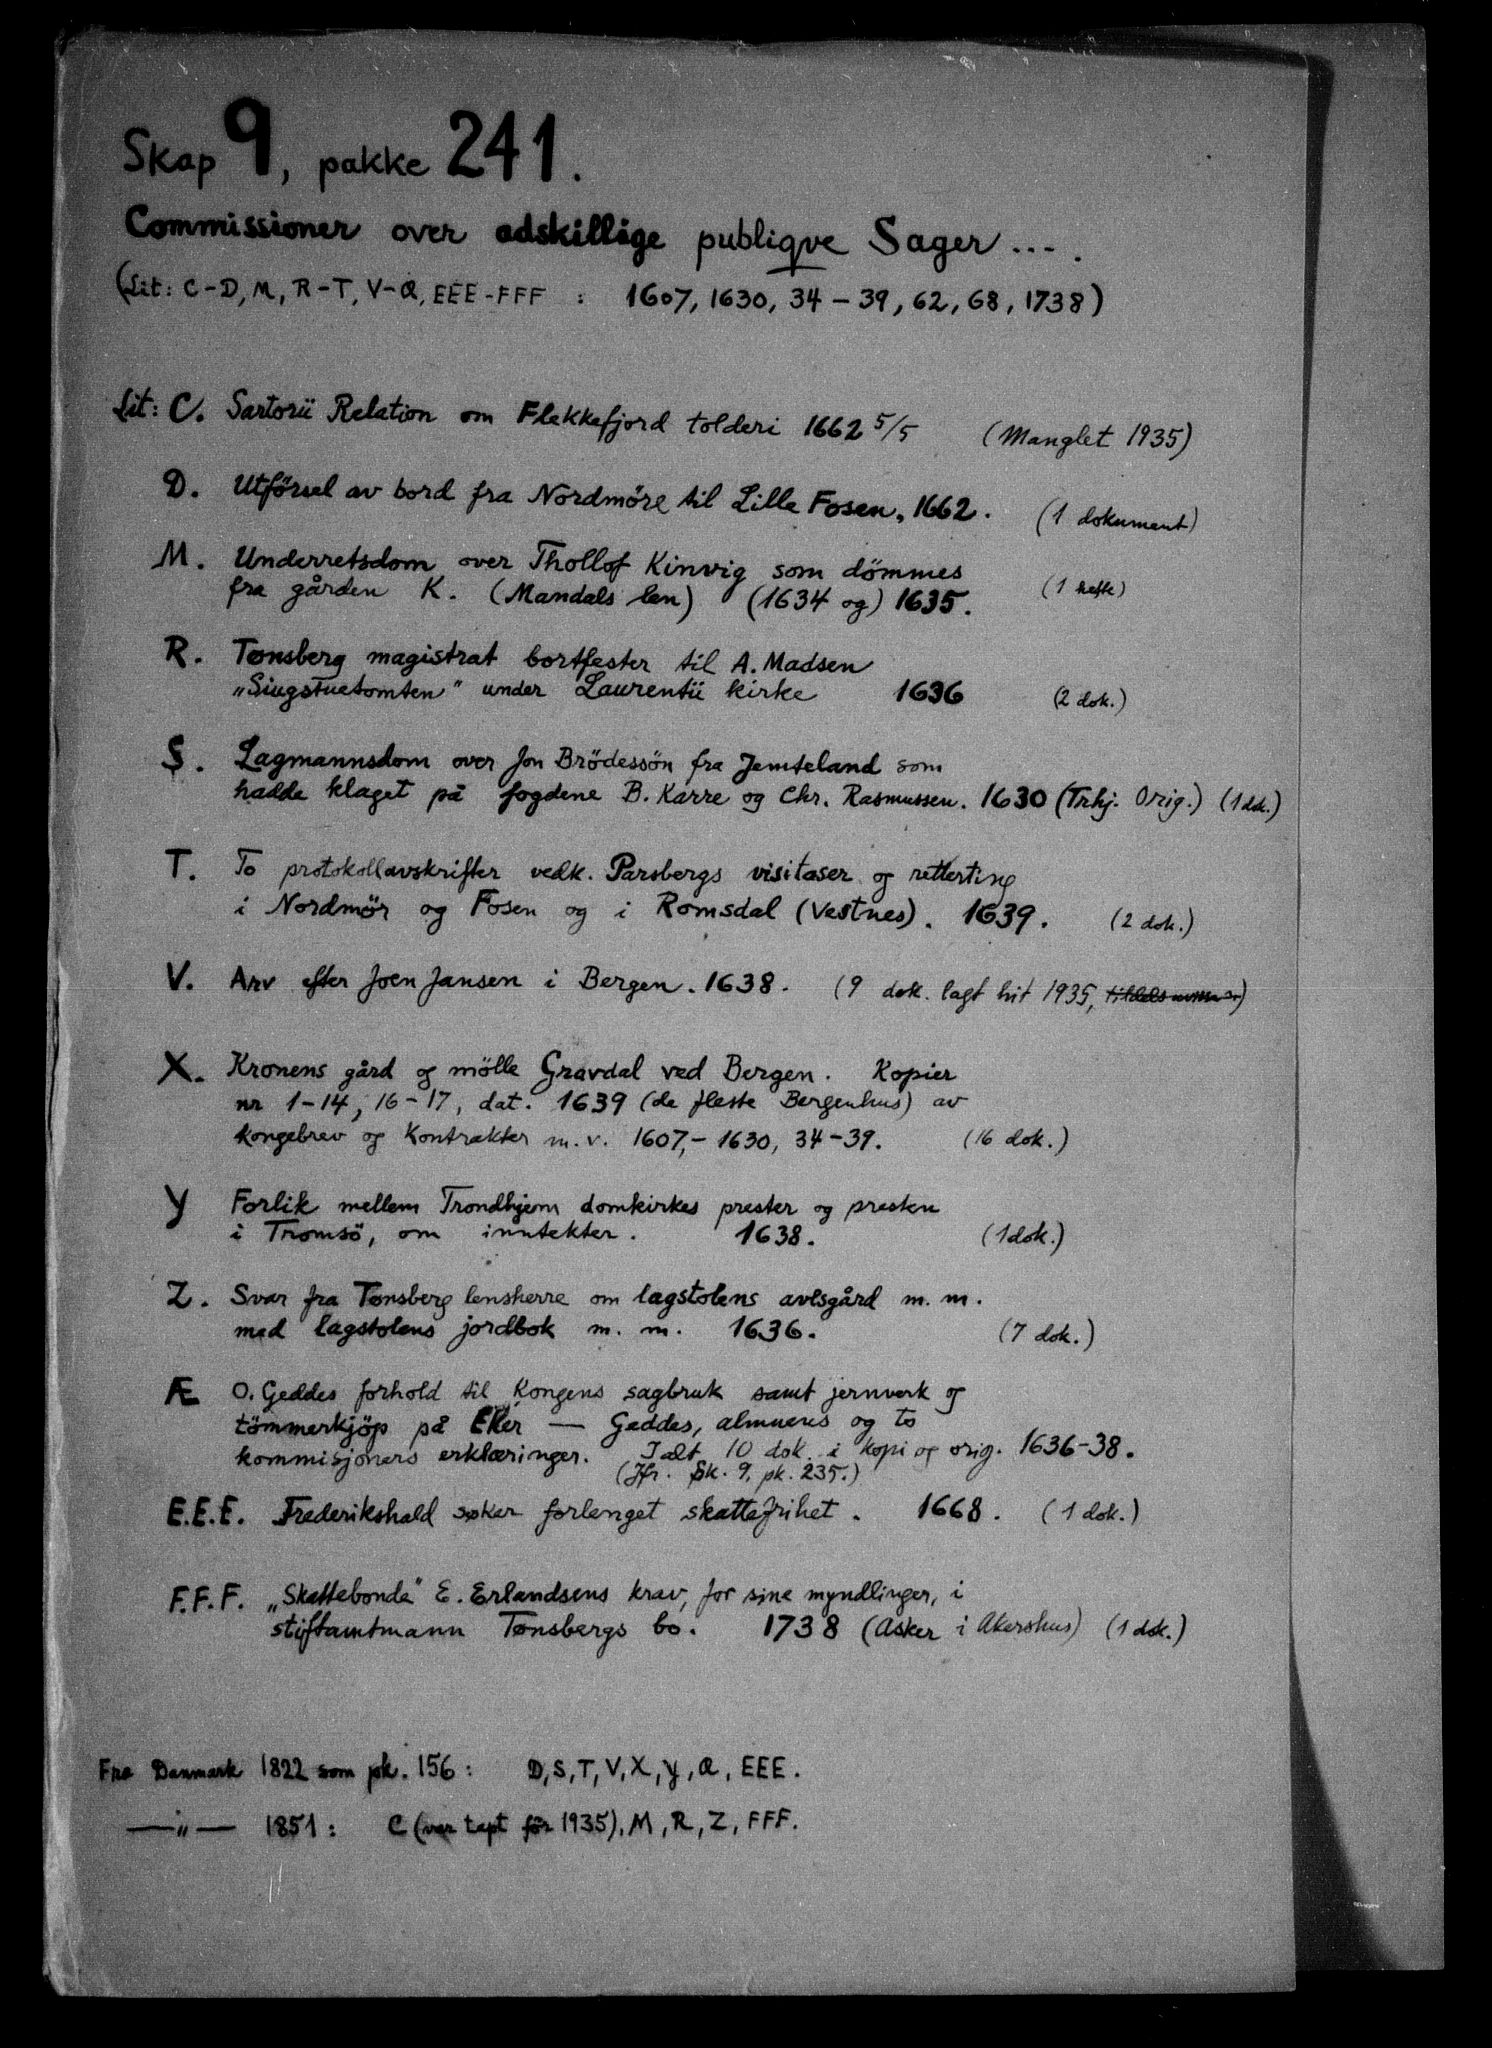 Skap 9, pakke 241.
Commissioner over adskillige publiqve Sager ... .
(Lit: C-D, M, R-T, V-Æ, EEE-FFF : 1607, 1630, 34-39, 62, 68, 1738)
Lit: C. Sartorii Relation om Flekkefjord tolderi 1662 5/5 (Manglet 1935)
D. Utförsel av bord fra Nordmöre til Lille Fosen, 1662. (1 dokument)
M. Underretsdom over Thollof Kinvig som dömmes
fra gården K. (Mandals len) (1634 og) 1635. (1 hefte)
R. Tønsberg magistrat bortfester til A. Madsen
„Siugstuetomten" under Laurentii kirke 1636 (2 dok.)
S. Lagmannsdom over Jon Brödessön fra Jemteland som
hadde klaget på fogdene B. Karre og Chr. Rasmussen. 1630 (Trhj. Orig.) (1 dok.)
T. To protokollavskrifter vedk. Parsbergs visitaser og retterting
i Nordmör og Fosen og i Romsdal (Vestnes). 1639. (2 dok.)
V. Arv efter Joen Jansen i Bergen. 1638. (9 dok. lagt hit 1935,)
X. Kronens gård og mölle Gravdal ved Bergen. Kopier
nr 1-14, 16-17, dat. 1639 (de fleste Bergenhus) av
kongebrev og kontrakter m.v. 1607,- 1630, 34-39. (16 dok.)
Y Forlik mellem Trondhjem domkirkes prester og presten
i Tromsö, om inntekter. 1638. (1 dok.)
Z. Svar fra Tønsberg lensherre om lagstolens avlsgård m.m.
med lagstolens jordbok m.m. 1636. (7 dok.)
Æ O. Geddes forhold til Kongens sagbruk samt jernverk og
tömmerkjöp på Eker — Geddes, almuens og to
kommisjoners erklæringer. I alt 10 dok. i kopi og orig. 1636-38.
(Jfr. Sk. 9, pk. 235.)
E.E.E. Frederikshald søker forlenget skattefrihet. 1668. (1 dok.)
F.F.F. „Skattebonde" E. Erlandsens krav, for sine myndlinger, i
stiftamtmann Tønsbergs bo. 1738 (Asker i Akershus) (1 dok.)
Fra Danmark 1822 som pk. 156: D, S, T, V, X, Y, Æ, EEE.
—„— 1851: C (var tapt för 1935), M, R, Z, FFF.